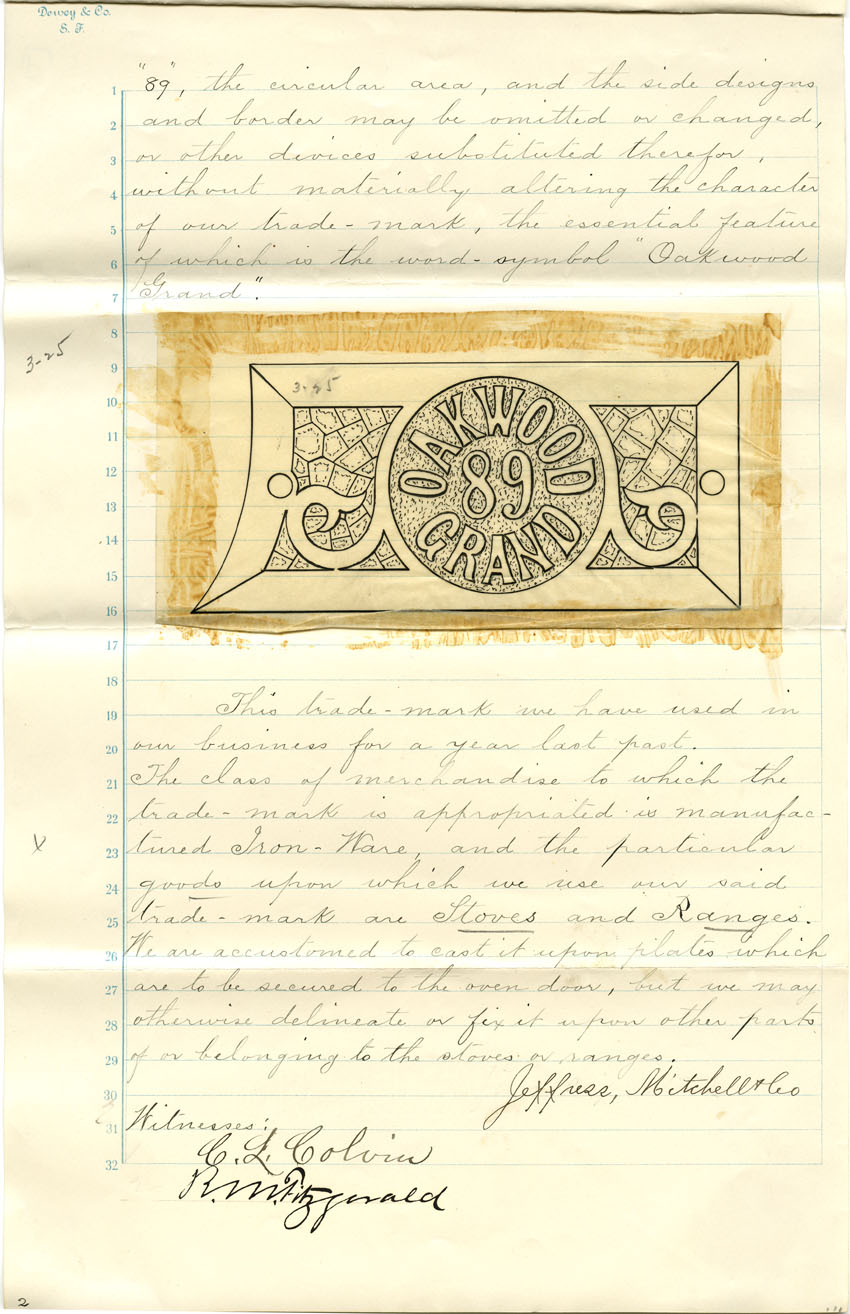 Dewey & Co.
S. F.
1 "89", the circular area, and the side designs
2 and border may be omitted or changed,
3 or other divices substituted therefor,
4 without materially altering the character
5 of our trade-mark, the essential feature
6 of which is the word-symbol "Oakwood
7 Grand".
8
3-25
9
3-25
10
OAKWOOD
11
12
89
13
14
GRAND
15
16
17
18
19 This trade-mark we have used in
20 our business for a year last past.
21 The class of merchandise to which the
22 trade-mark is appropriated is manufac-
X
23 tured Iron-Ware, and the particular
24 goods upon which we use our said
25 trade-mark are Stoves and Ranges.
26 We are accustomed to cast it upon plates which
27 are to be secured to the oven door, but we may
28 otherwise delineate or fix it upon other parts
29 of or belonging to the stoves or ranges.
30 Jeffress, Mitchell & Co
31 Witnesses:
32 C. L. Colvin
R. M. Fitzgerald
2